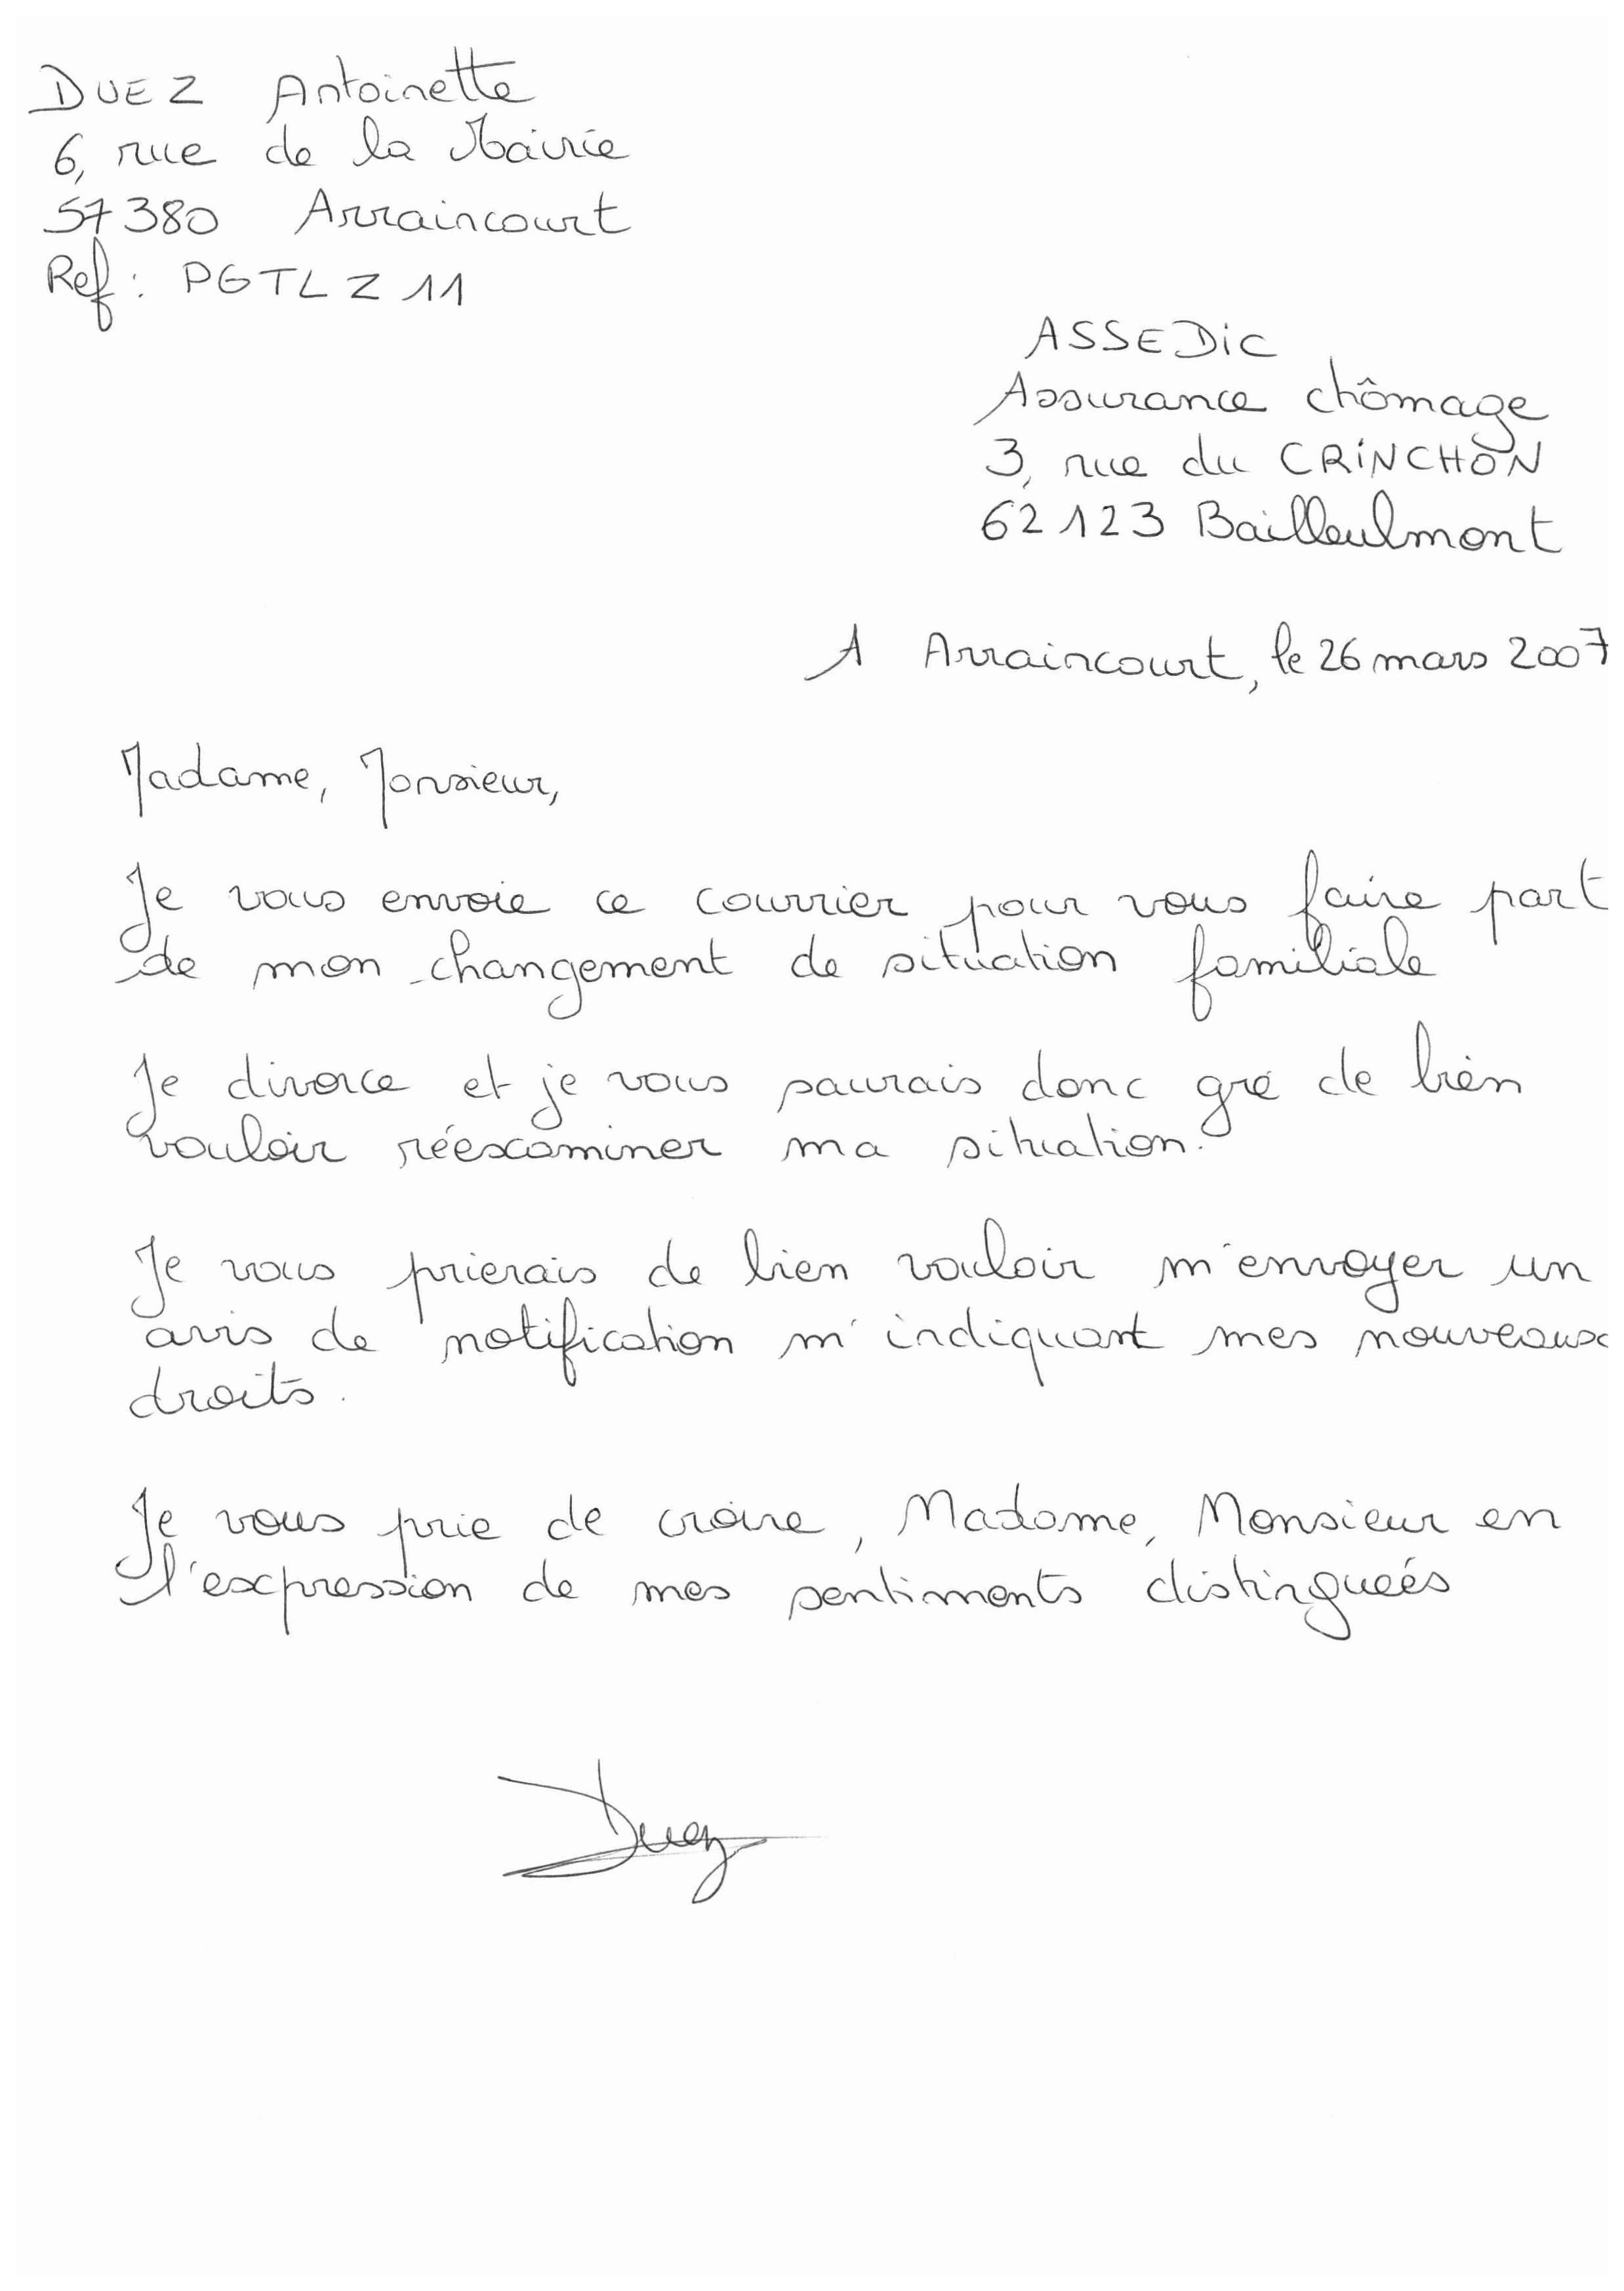 DUEZ Antoinette
6, rue de la Mairie
57380 Arraincourt
Ref : PGTLZ11
ASSEDiC
Assurance chômage
3, rue du CRiNCHON
62123 Bailleulmont
A Arraincourt, le 26 mars 2007
Madame, Monsieur,
Je vous envoie ce courrier pour vous faire part
de mon changement de situation familiale
Je divorce et je vous saurais donc gré de bien
vouloir réexaminer ma situation.
Je vous prierais de bien vouloir m'envoyer un
avis de notification m'indiquant mes nouveaux
droits.
Je vous prie de croire, Madame, Monsieur en
l'expression de mes sentiments distingueés
Duez